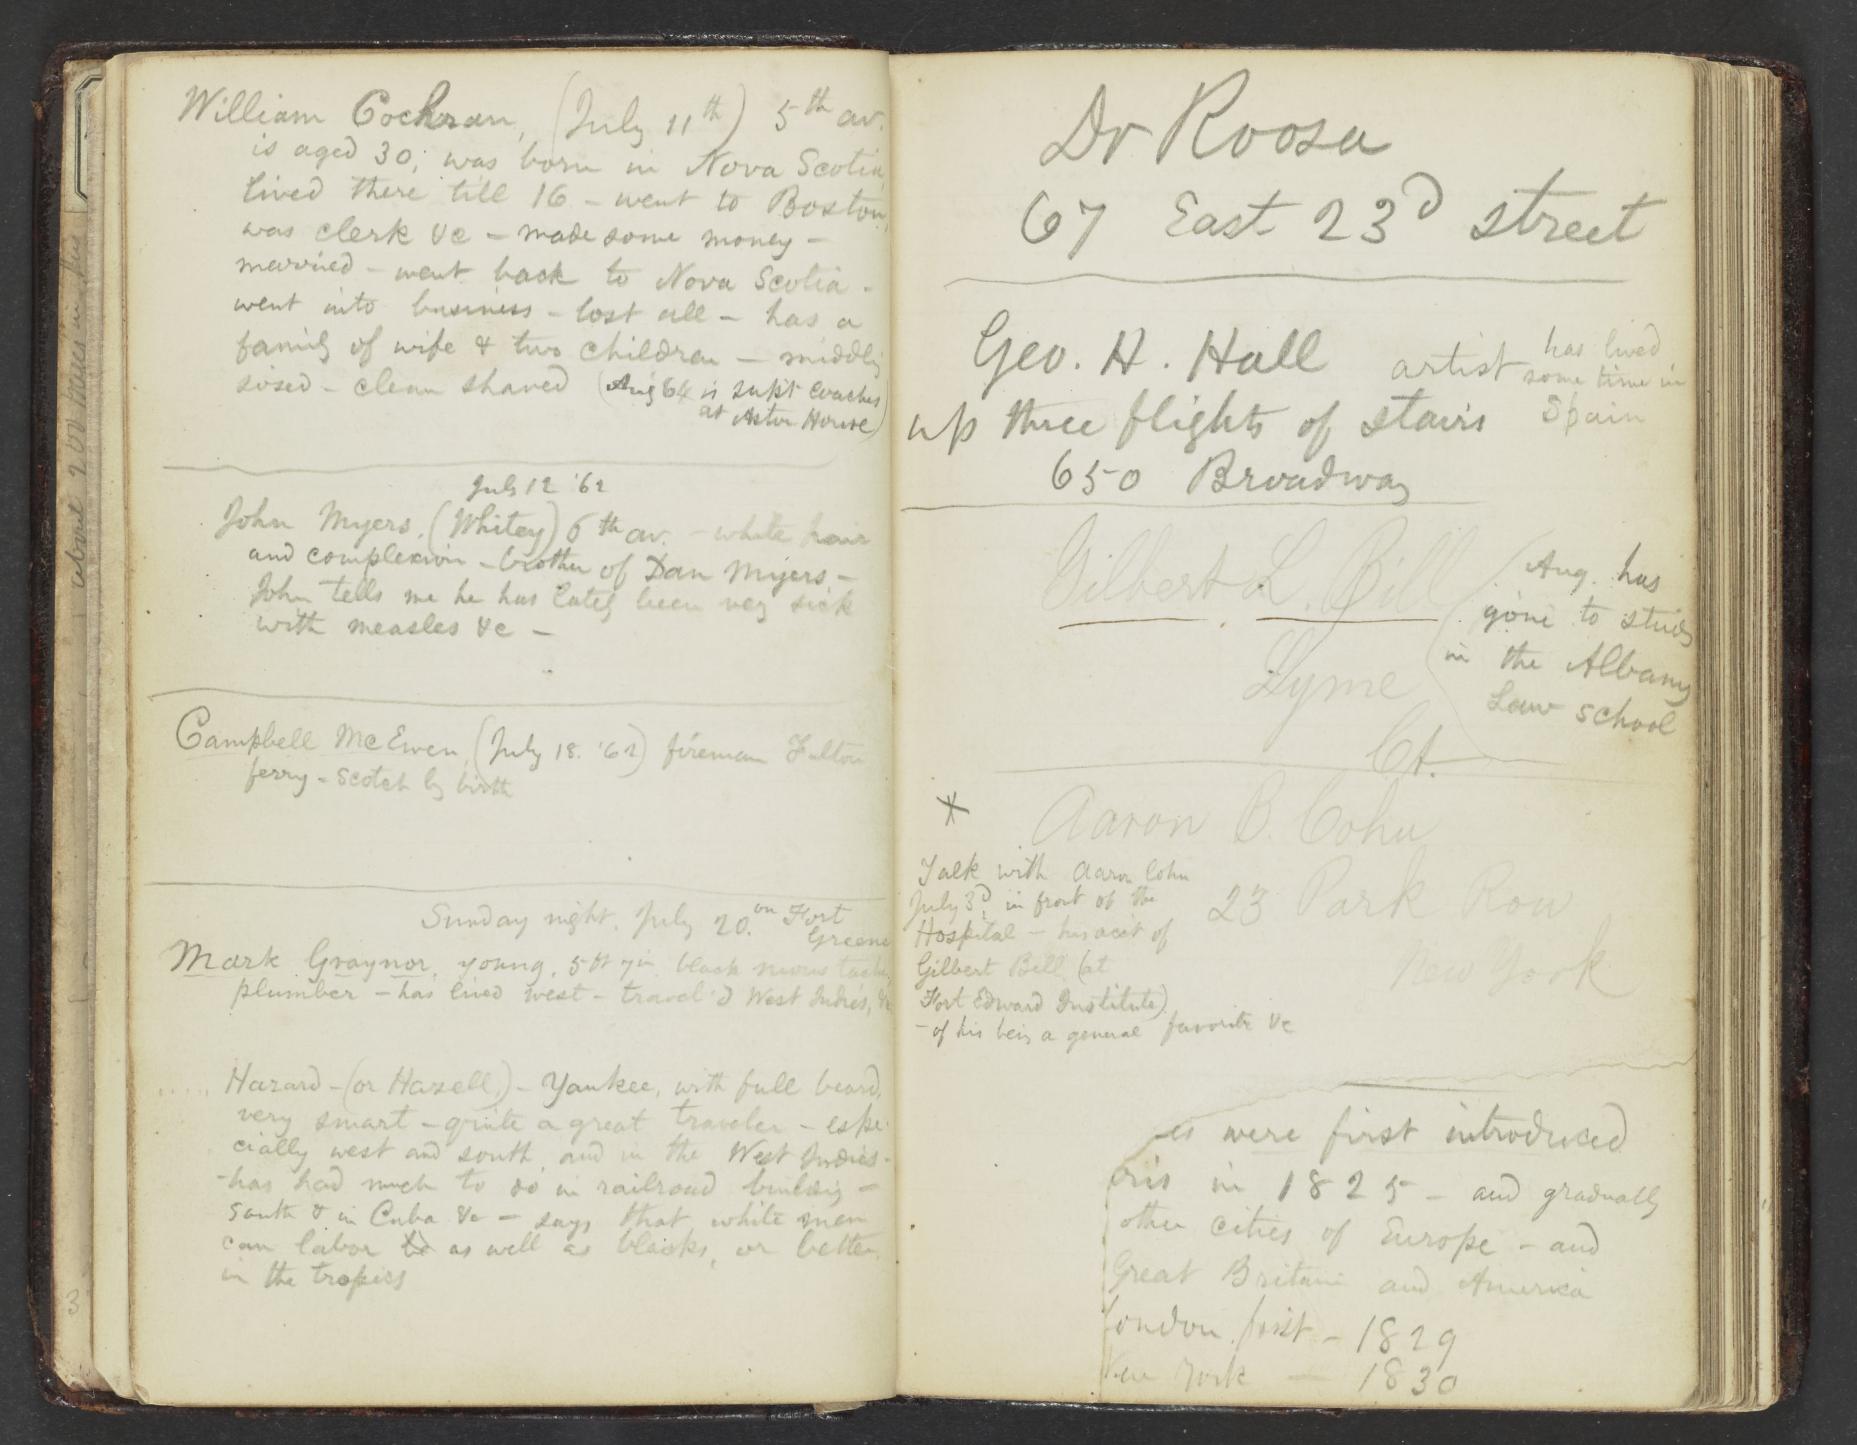 William Cochran, (July 11th) 5th av.
is aged 30; was born in Nova Scotia,
lived there till 16 – went to Boston,
was clerk &c – made some money –
married – went back to Nova Scotia –
went into business – lost all – has a
family of wife & two children – middling
sized – clean shaved (Aug 64 is supt coaches
at Astor House)
July 12 '62
John Myers, (Whitey) 6th av. – white hair
and complexion – brother of Dan Myers –
John tells me he has lately been very sick
with measles &c –
Campbell McEwen, (July 18. '62) fireman Fulton
ferry – Scotch by birth
Sunday night, July 20. on Fort
Greene
Mark Graynor, young, 5 ft 7 in black moustache
plumber – has lived west – travel'd West Indies, &c
..... Hazard – (or Hazell,) – Yankee, with full beard,
very smart – quite a great traveler – espe
cially west and south, and in the West Indies –
– has had much to do in railroad building –
South & in Cuba &c – says that white men
can labor as well as blacks, or better,
in the tropics
about 200 in
3
Dr Roosa
67 East 23d street
Geo. H. Hall artist has lived
some time in
Spain
up three flights of stairs
650 Broadway
Gilbert L. Bill
Lyme
Ct.
(Aug. has
gone to study
in the Albany
Law School
* Aaron B. Cohu
23 Park Row
New York
Talk with Aaron Cohu
July 3d, in front of the
Hospital – his acc't of
Gilbert Bill (at
Fort Edward Institute)
– of his being a general favorite &c
es were first introduced
aris in 1825 – and gradually
other cities of Europe – and
Great Britain and America
London first – 1829
New York — 1830